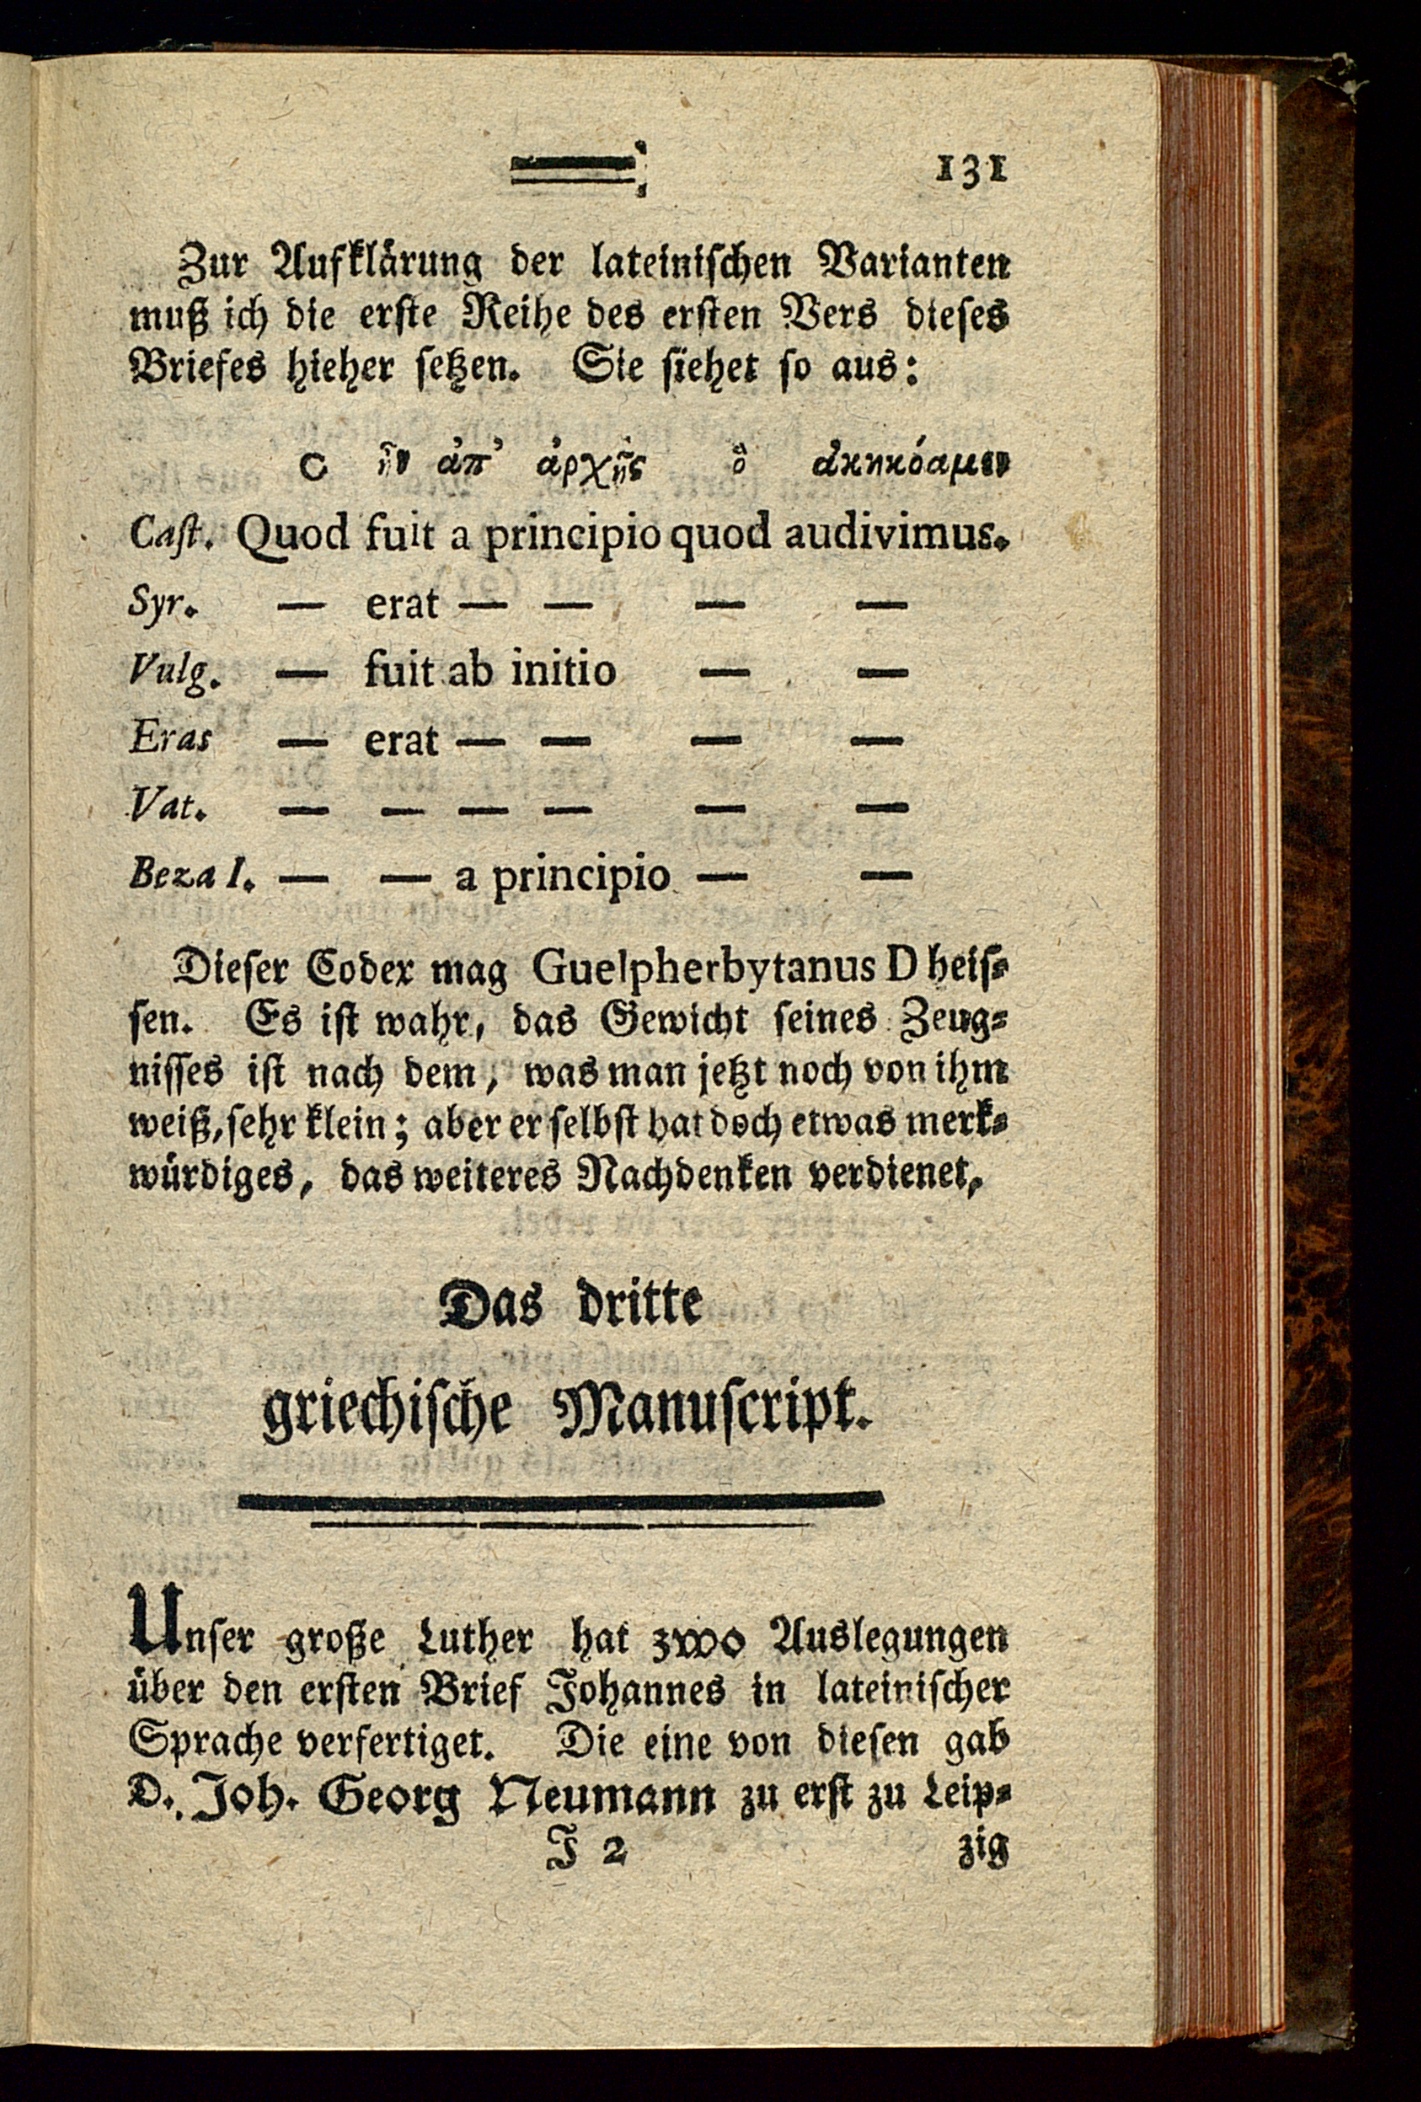 131
Zur Aufklärung der lateinischen Varianten
muß ich die erste Reihe des ersten Vers dieses
Briefes hieher setzen. Sie siehet so aus:
Ο ἦν ἀπ' ἀρχῆς ὃ ἀκηκόαμεν
Cast. Quod fuit a principio quod audivimus.
Syr. — erat — — — —
Vulg. — fuit ab initio — —
Eras — erat — — — —
Vat. — — — — — —
Beza I. — — a principio — —
Dieser Codex mag Guelpherbytanus D heis-
sen. Es ist wahr, das Gewicht seines Zeug-
nisses ist nach dem, was man jetzt noch von ihm
weiß, sehr klein; aber er selbst hat doch etwas merk-
würdiges, das weiteres Nachdenken verdienet.
Das dritte
griechische Manuscript.
Unser große Luther hat zwo Auslegungen
über den ersten Brief Johannes in lateinischer
Sprache verfertiget. Die eine von diesen gab
D. Joh. Georg Neumann zu erst zu Leip-
J 2 zig